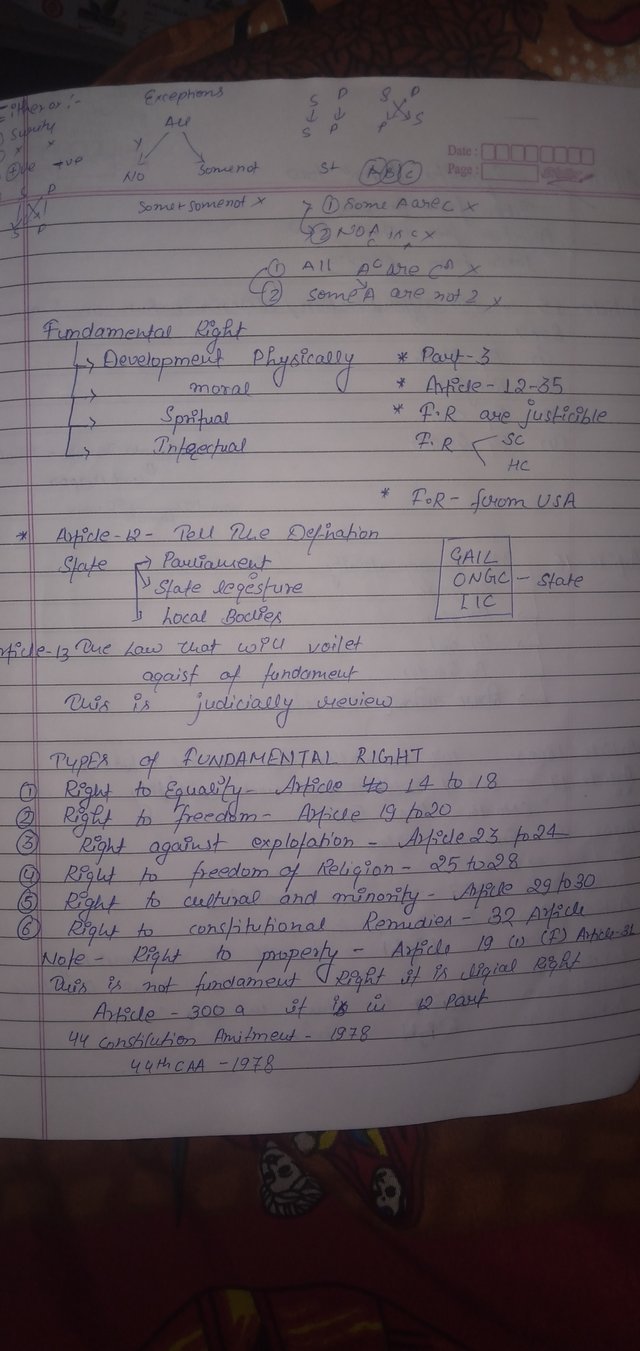 Either or :-
Exceptions
S P S P
All
S P P S
Date :
Page :
+ve +ve
Y
NO Somenot
St A B C
S P
S P
Some + somenot x
① Some A are C x
② NO A is C x
① All A are C x
② some A are not 2 x
Fundamental Right
Development Physically * Part-3
moral * Article - 12-35
Spritual * F.R are justicible
Intelectual F.R SC
HC
* F.R - from USA
* Article-12- Tell The Defination
State Parliament GAIL
State legesture ONGC - State
Local Bodies LIC
Article-13 The Law that will voilet
agaist of fundament
This is judicially review
TYPES of FUNDAMENTAL RIGHT
① Right to Equality- Article 14 to 18
② Right to freedom- Article 19 to 20
③ Right against explofation - Article 23 to 24
④ Right to freedom of Religion - 25 to 28
⑤ Right to cultural and minority- Article 29 to 30
⑥ Right to constitutional Remidies - 32 Article
Note - Right to property - Article 19 (1) (f) Article-31
This is not fundament Right it is ligial Right
Article - 300 a it is in 12 Part
44 Constitution Amitment - 1978
44th CAA - 1978